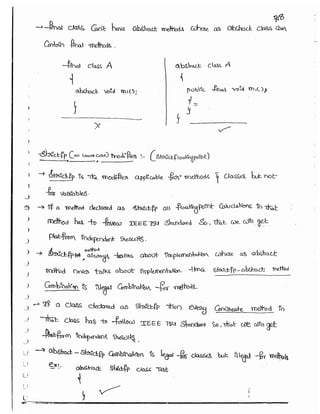 → final class can't have abstract methods where as abstract class can
contain final methods.
final class A
{
abstract void m1();
}
✗
abstract class A
{
public final void m1()
{ =
}
}
✓
strictfp (on lower case) modifier :- (strictfloatingpoint)
→ strictfp is the modifier applicable for methods & classes but not
for variables.
→ If a method declared as strictfp all floatingpoint calculations in that
method has to follow IEEE 754 standard so, that we can get
platform independent results.
→ strictfp method always talks about implementation where as abstract
method never talks about implementation hence strictfp-abstract method
combination is illegal combination for methods.
→ If a class declared as strictfp then every concreate method in
that class has to follow IEEE 754 standard so, that we can get
platform independent results.
→ abstract - strictfp combination is legal for classes but illegal for methods
Ex:. abstract strictfp class Test
{
}
✓